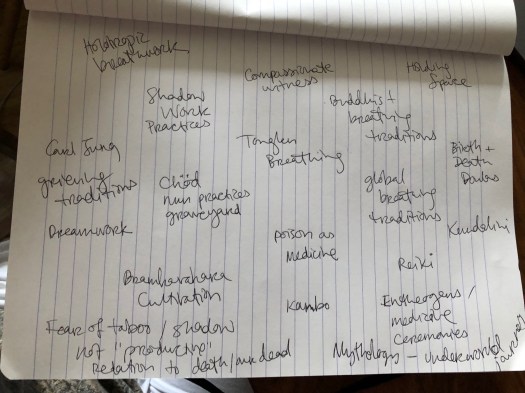 Holotropic
breathwork
Compassionate
witness
Holding
Space
Shadow
Work
Practices
Buddhist
breathing
traditions
Carl Jung
Tonglen
Breathing
Birth +
Death
Doulas
grieving
traditions
Chöd
nun practices
graveyard
global
breathing
traditions
Dreamwork
poison as
medicine
Kundalini
Reiki
Bramhavahara
Cultivation
Kambo
Entheogens /
medicine
Ceremonies
Fear of taboo / shadow
not "productive"
Relation to death/our dead
Mythology - underworld
journeys